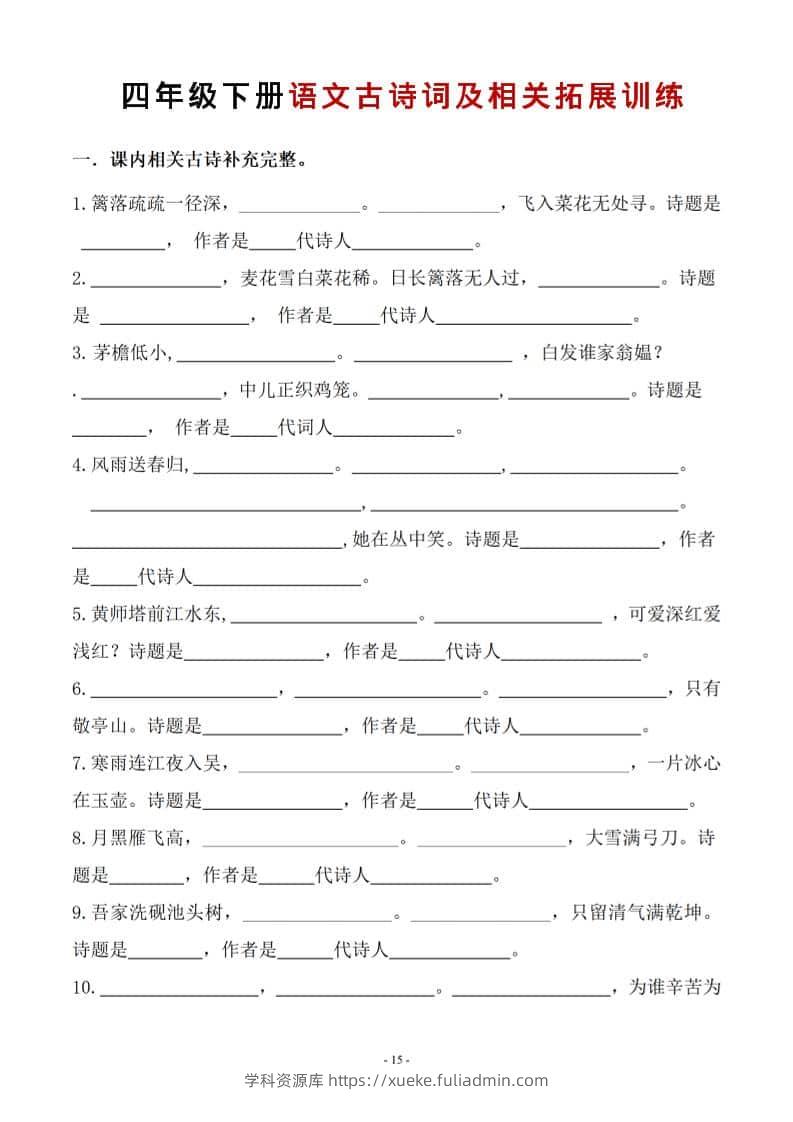 四年级下册语文古诗词及相关拓展训练
一．课内相关古诗补充完整。
1.篱落疏疏一径深，_____________。_____________，飞入菜花无处寻。诗题是
_________， 作者是_____代诗人_____________。
2.______________，麦花雪白菜花稀。日长篱落无人过，_____________。诗题
是 ________________， 作者是_____代诗人_____________________。
3.茅檐低小,_________________。_________________ ，白发谁家翁媪？
._______________，中儿正织鸡笼。______________,_____________。诗题是
________， 作者是_____代词人_____________。
4.风雨送春归,_______________。________________,__________________。
_____________________________,_________________________________。
_____________________________,她在丛中笑。诗题是_______________，作者
是_____代诗人__________________。
5.黄师塔前江水东,____________________。__________________ ，可爱深红爱
浅红？诗题是_______________，作者是_____代诗人_______________。
6.____________________，____________________。__________________，只有
敬亭山。诗题是_______________，作者是_____代诗人_____________。
7.寒雨连江夜入吴，_______________________。_________________，一片冰心
在玉壶。诗题是_______________，作者是______代诗人_________________。
8.月黑雁飞高，_____________________。________________，大雪满弓刀。诗
题是________，作者是______代诗人_____________。
9.吾家洗砚池头树，________________。_______________，只留清气满乾坤。
诗题是________，作者是______代诗人_____________。
10._________________，_________________。_________________，为谁辛苦为
- 15 -
学科资源库 https://xueke.fuliadmin.com